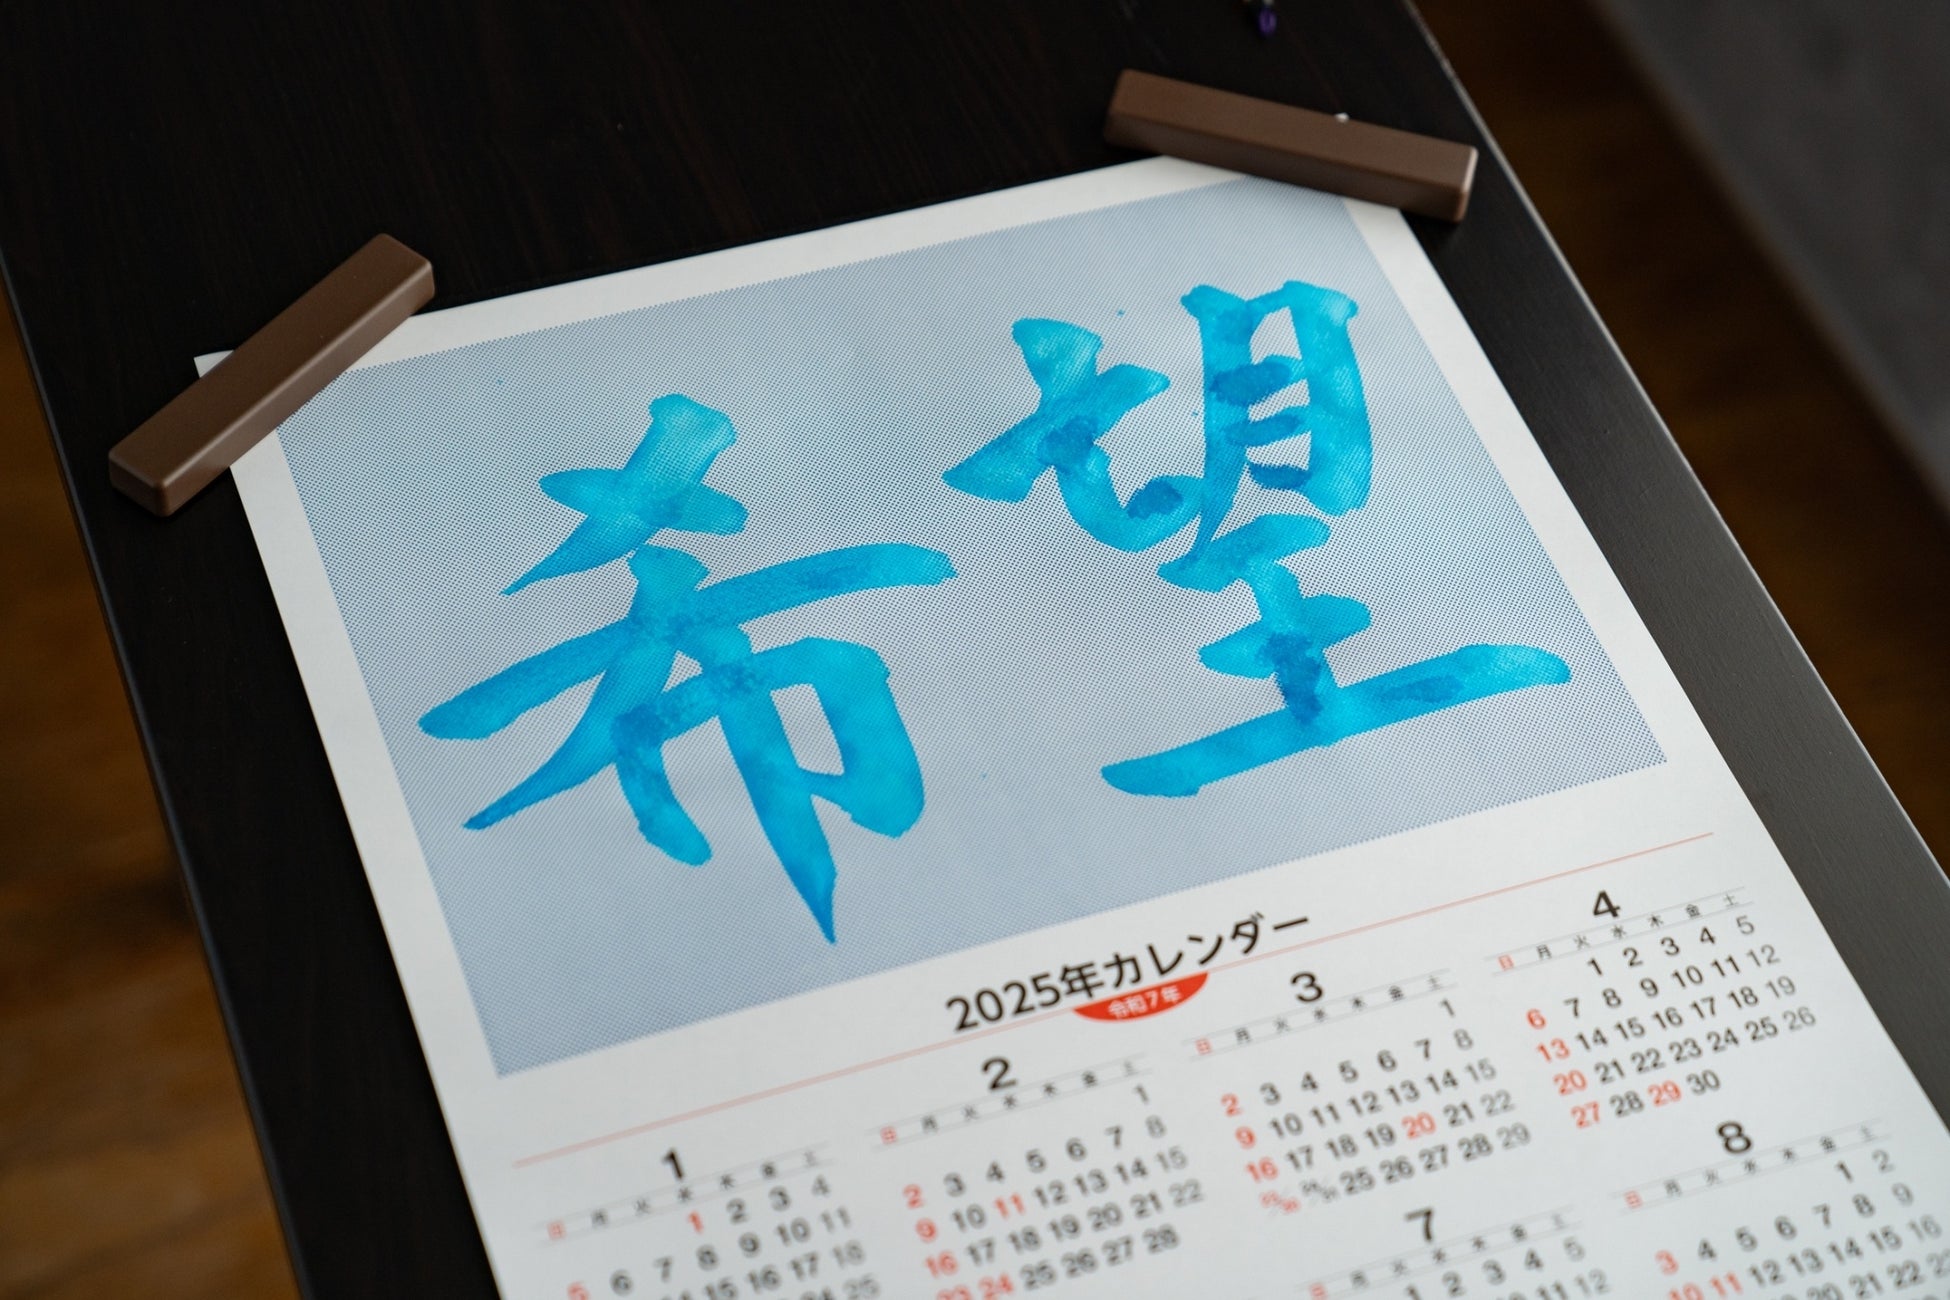 希望
2025年カレンダー
令和7年
1
日 月 火 水 木 金 土
1 2 3 4
5 6 7 8 9 10 11
14 15 16 17 18
2
日 月 火 水 木 金 土
1
2 3 4 5 6 7 8
9 10 11 12 13 14 15
16 17 18 19 20 21 22
23 24 25 26 27 28
3
日 月 火 水 木 金 土
1
2 3 4 5 6 7 8
9 10 11 12 13 14 15
16 17 18 19 20 21 22
23/30 24/31 25 26 27 28 29
4
日 月 火 水 木 金 土
1 2 3 4 5
6 7 8 9 10 11 12
13 14 15 16 17 18 19
20 21 22 23 24 25 26
27 28 29 30
7
日 月 火 水 木 金 土
1 2 3 4 5
10 11 12
8
日 月 火 水 木 金 土
1 2
3 4 5 6 7 8 9
10 11 12 13 14 15 16
19 20 21 22